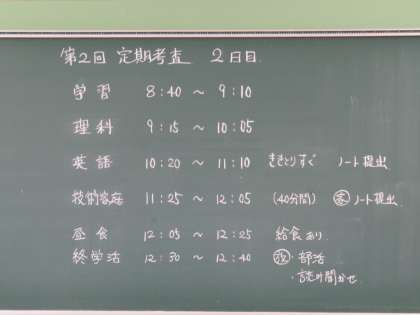 第2回 定期考査 2日目
学習 8:40 ～ 9:10
理科 9:15 ～ 10:05
英語 10:20 ～ 11:10 ききとりすぐ ノート提出
技術家庭 11:25 ～ 12:05 (40分間) 家 ノート提出
昼食 12:05 ～ 12:25 給食あり
終学活 12:30 ～ 12:40 放・部活
・読み聞かせ